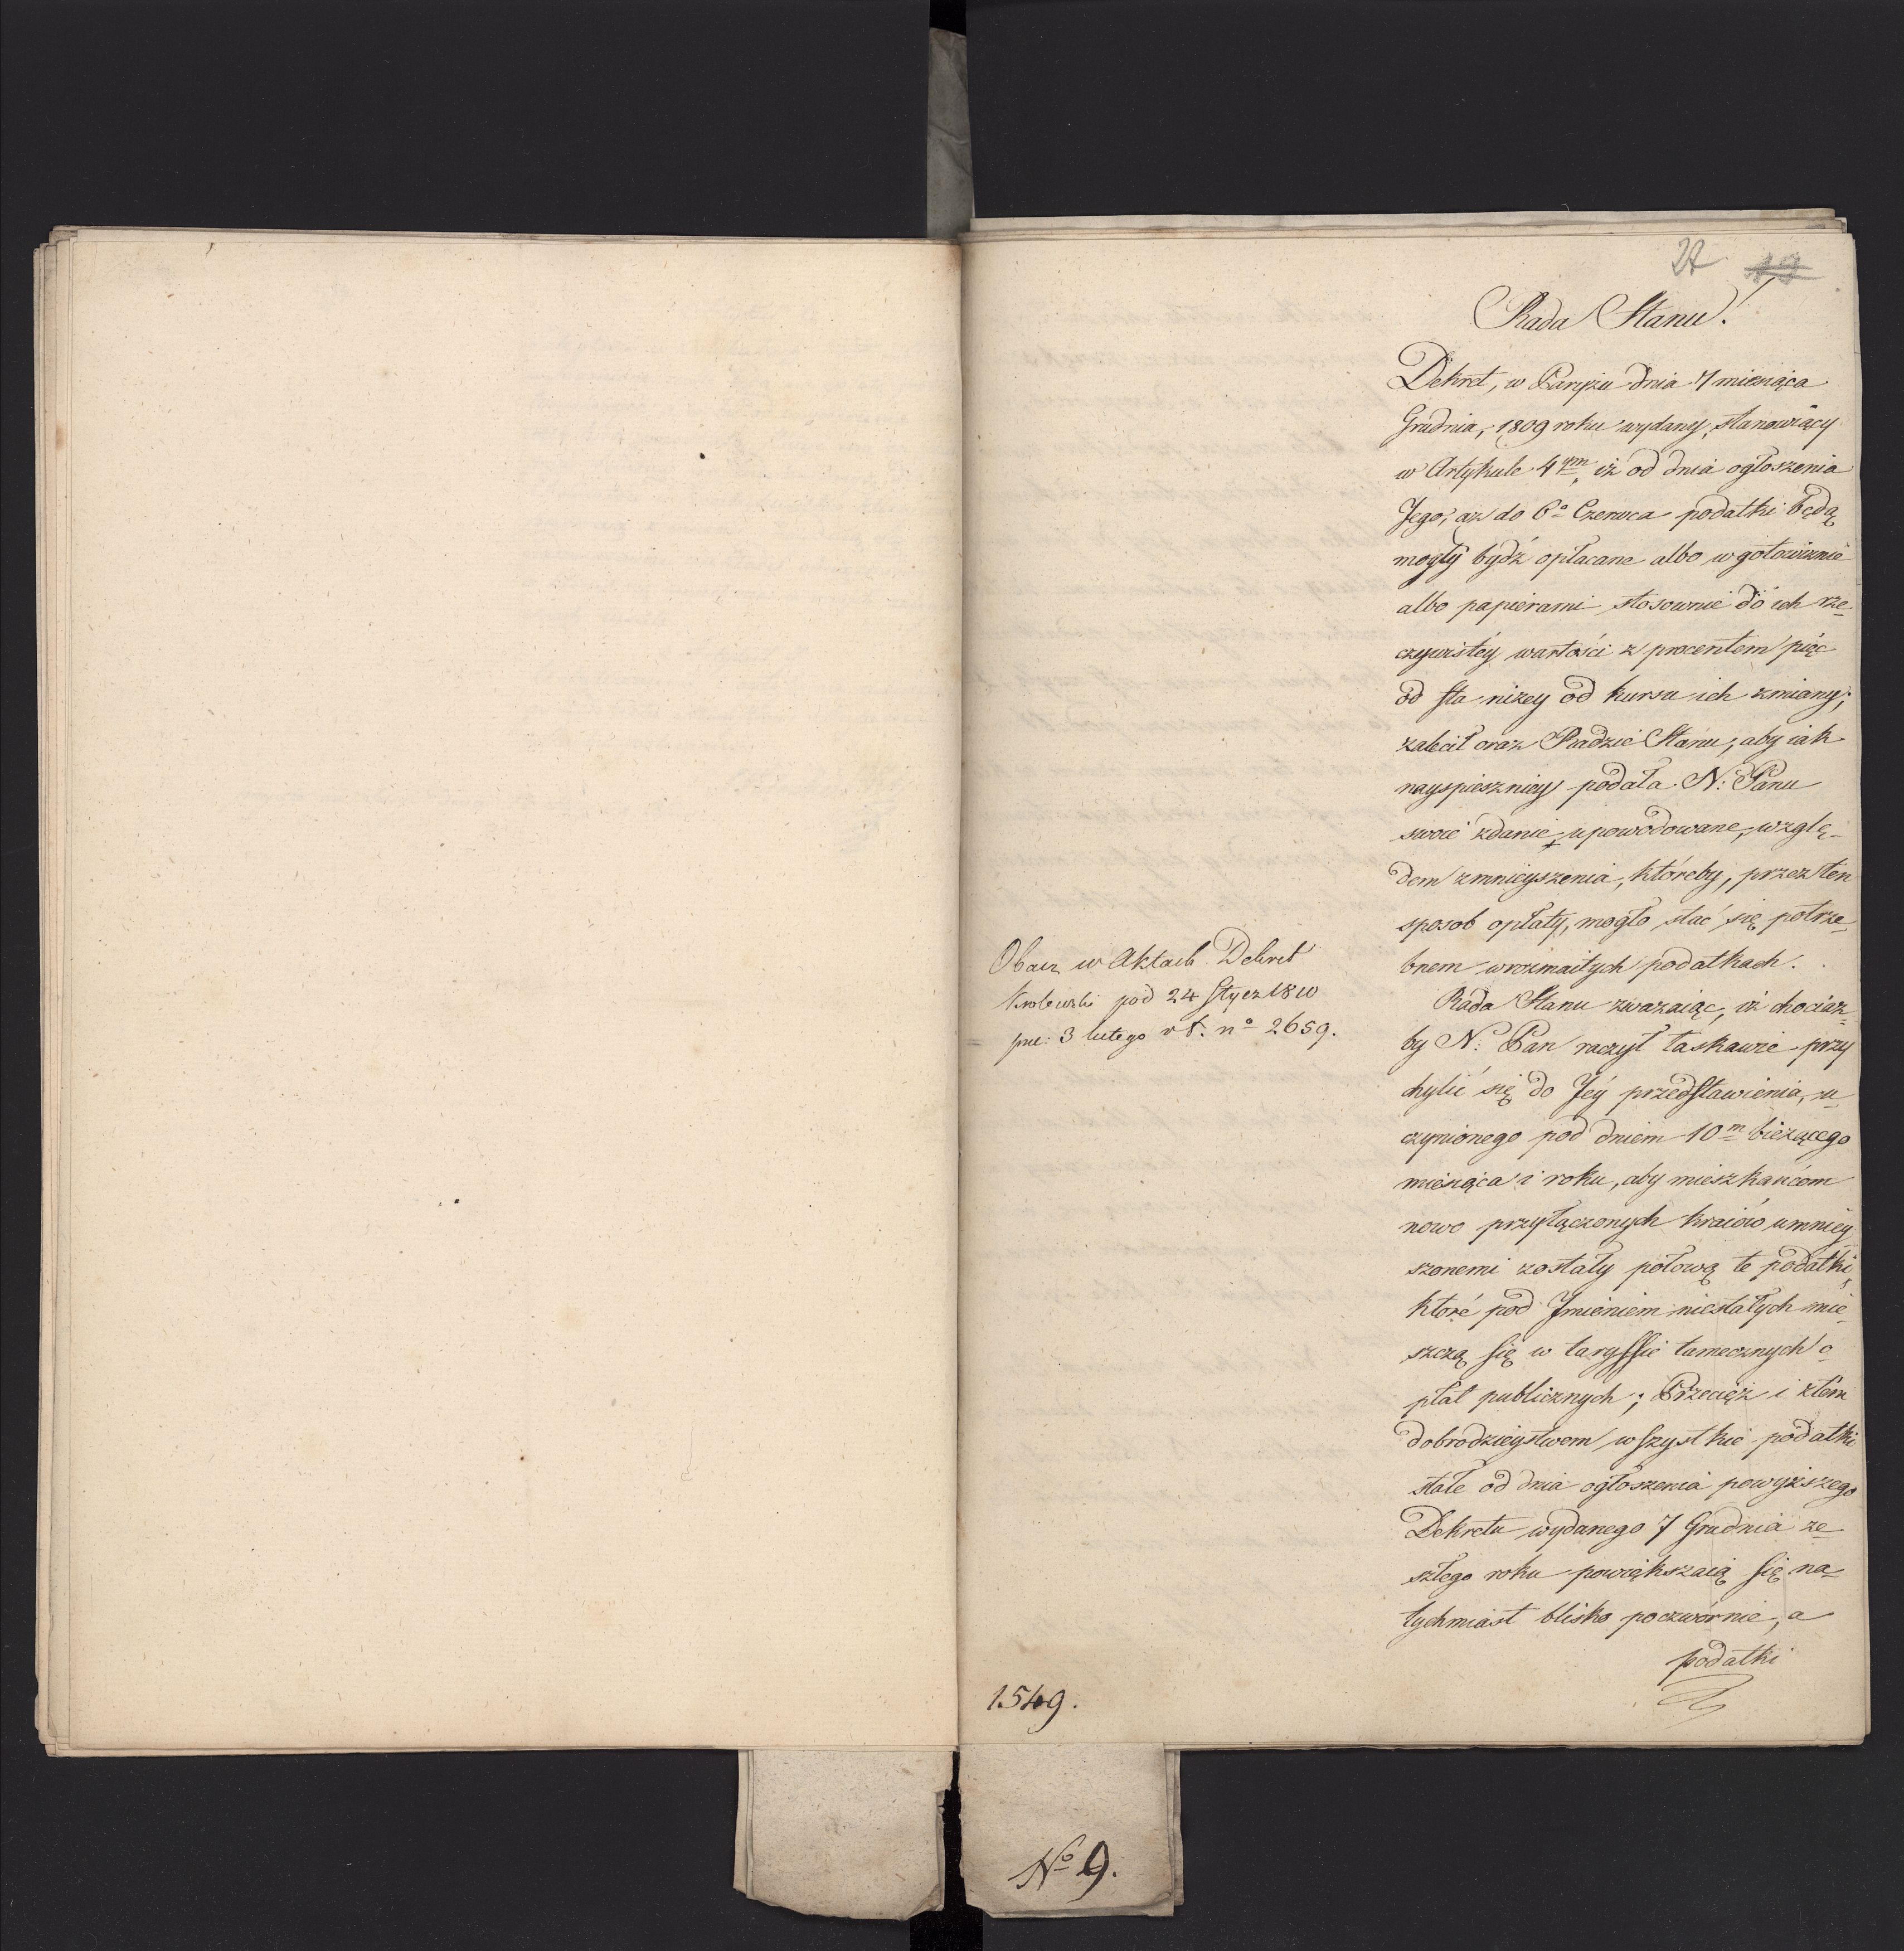 27 19
Rada Stanu!
Dekret, w Paryżu dnia 7 miesiąca
Grudnia, 1809 roku wydany, stanowiący
w Artykule 4ym, iż od dnia ogłoszenia
Jego, aż do 6o Czerwca podatki będą
mogły bydź opłacane albo w gotowiznie
albo papierami stosownie do ich rze-
czywistéy wartości z procentem pięc
od sta niżey od kursu ich zmiany;
zalecił oraz Radzie Stanu, aby iak
nayspieszniey podała N: Panu
swoie zdanie upowodowane, wzglę-
dem zmnieyszenia, któreby, przez ten
sposob opłaty, mogło stać się potrze-
bnem w rozmaitych podatkach.
Rada Stanu zważaiąc, iż chociaż-
by N: Pan raczył łaskawie przy
chylić się do Jéy przedstawienia, u-
czynionego pod dniem 10m bieżącego
miesiąca i roku, aby mieszkańcom
nowo przyłączonych kraiów umniey
szonemi zostały połową te podatki,
które pod Jmieniem niestałych mie-
szczą się w taryffie tamecznych o-
płat publicznych; Przecięż i z tém
dobrodzieystwem wszystkie podatki
stałe od dnia ogłoszenia powyższego
Dekretu wydanego 7 Grudnia ze-
szłego roku powiększaią się na-
tychmiast blisko poczwórnie, a
podatki
Obacz w Aktach Dekret
Krolewski pod 24 Stycz 1810
pre: 3 lutego no 2659.
1549.
No 9.